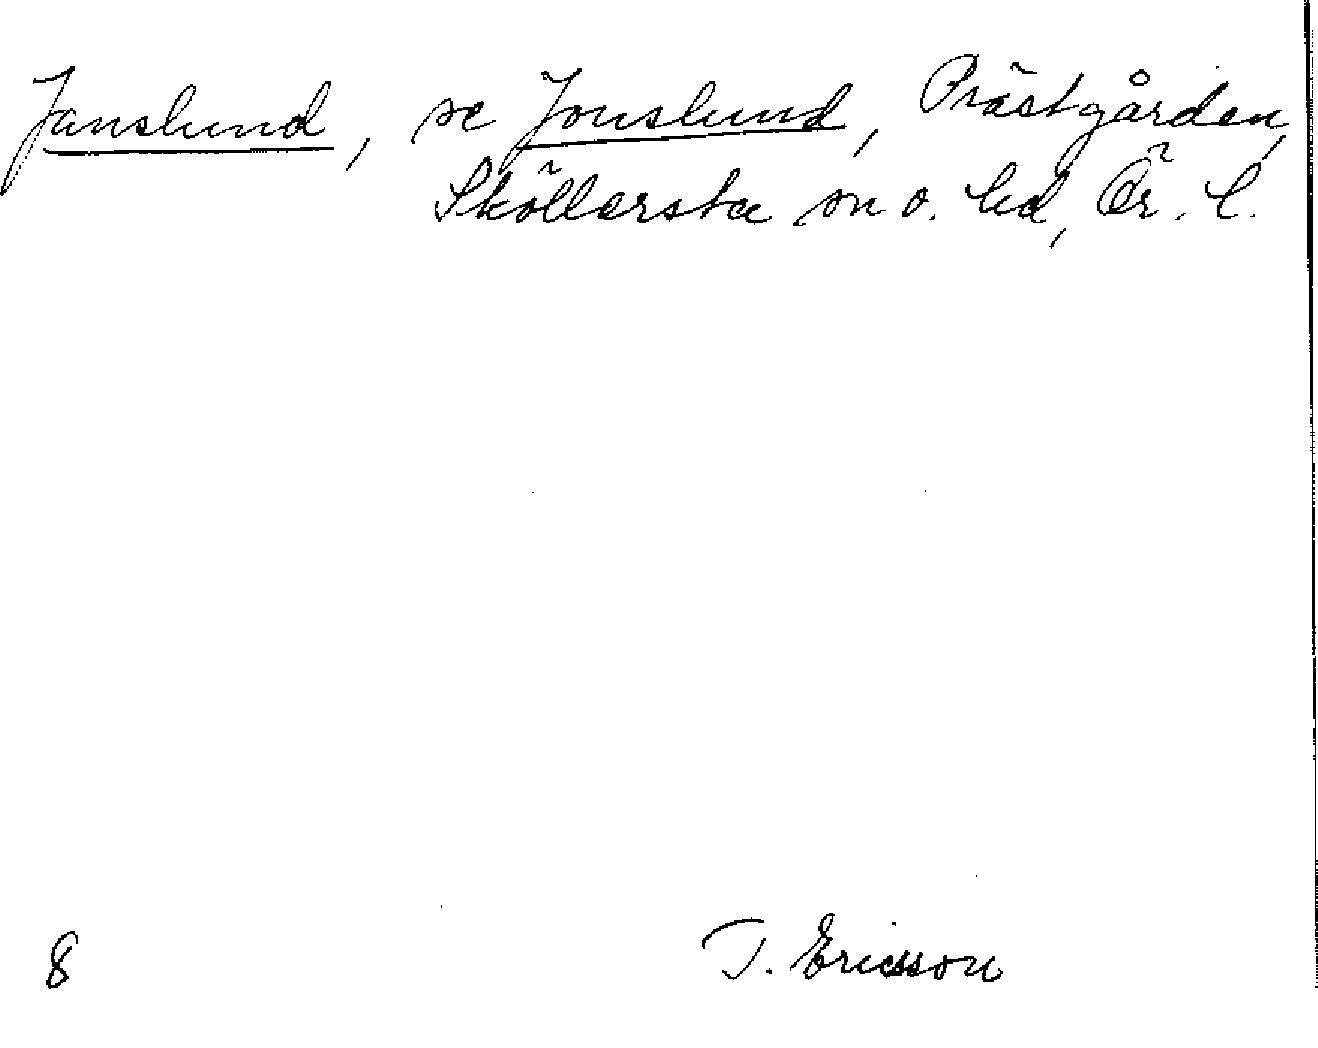 Janslund, se Jonslund, Prästgården,
Sköllersta sn o. hd, Ör. l.
8 T. Ericsson